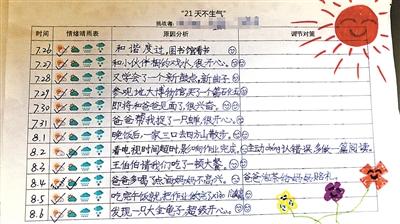 “21天不生气”
挑战者：
时间 情绪晴雨表 原因分析 调节对策
7.26 和谐度过，图书馆看书
7.27 和小伙伴相约戏水，很开心。
7.28 又学会了一个新甜点，新曲子
7.29 参观地大博物馆，买了个萤石
7.30 即将和爸爸见面了，很兴奋。
7.31 爸爸帮我捉了一只蝉，很开心。
8.1 晚饭后，一家三口去南山散步。
8.2 看电视时间超时，影响作业完成 主动dǎng认错误，多做一篇阅读。
8.3 王伯伯请我们吃了一顿大餐。
8.4 爸爸多喝了，妈妈不高兴。 爸爸泡茶给妈妈赔礼。
8.5 吃完午饭就把作业
8.6 发现一只大金龟子，超级开心。